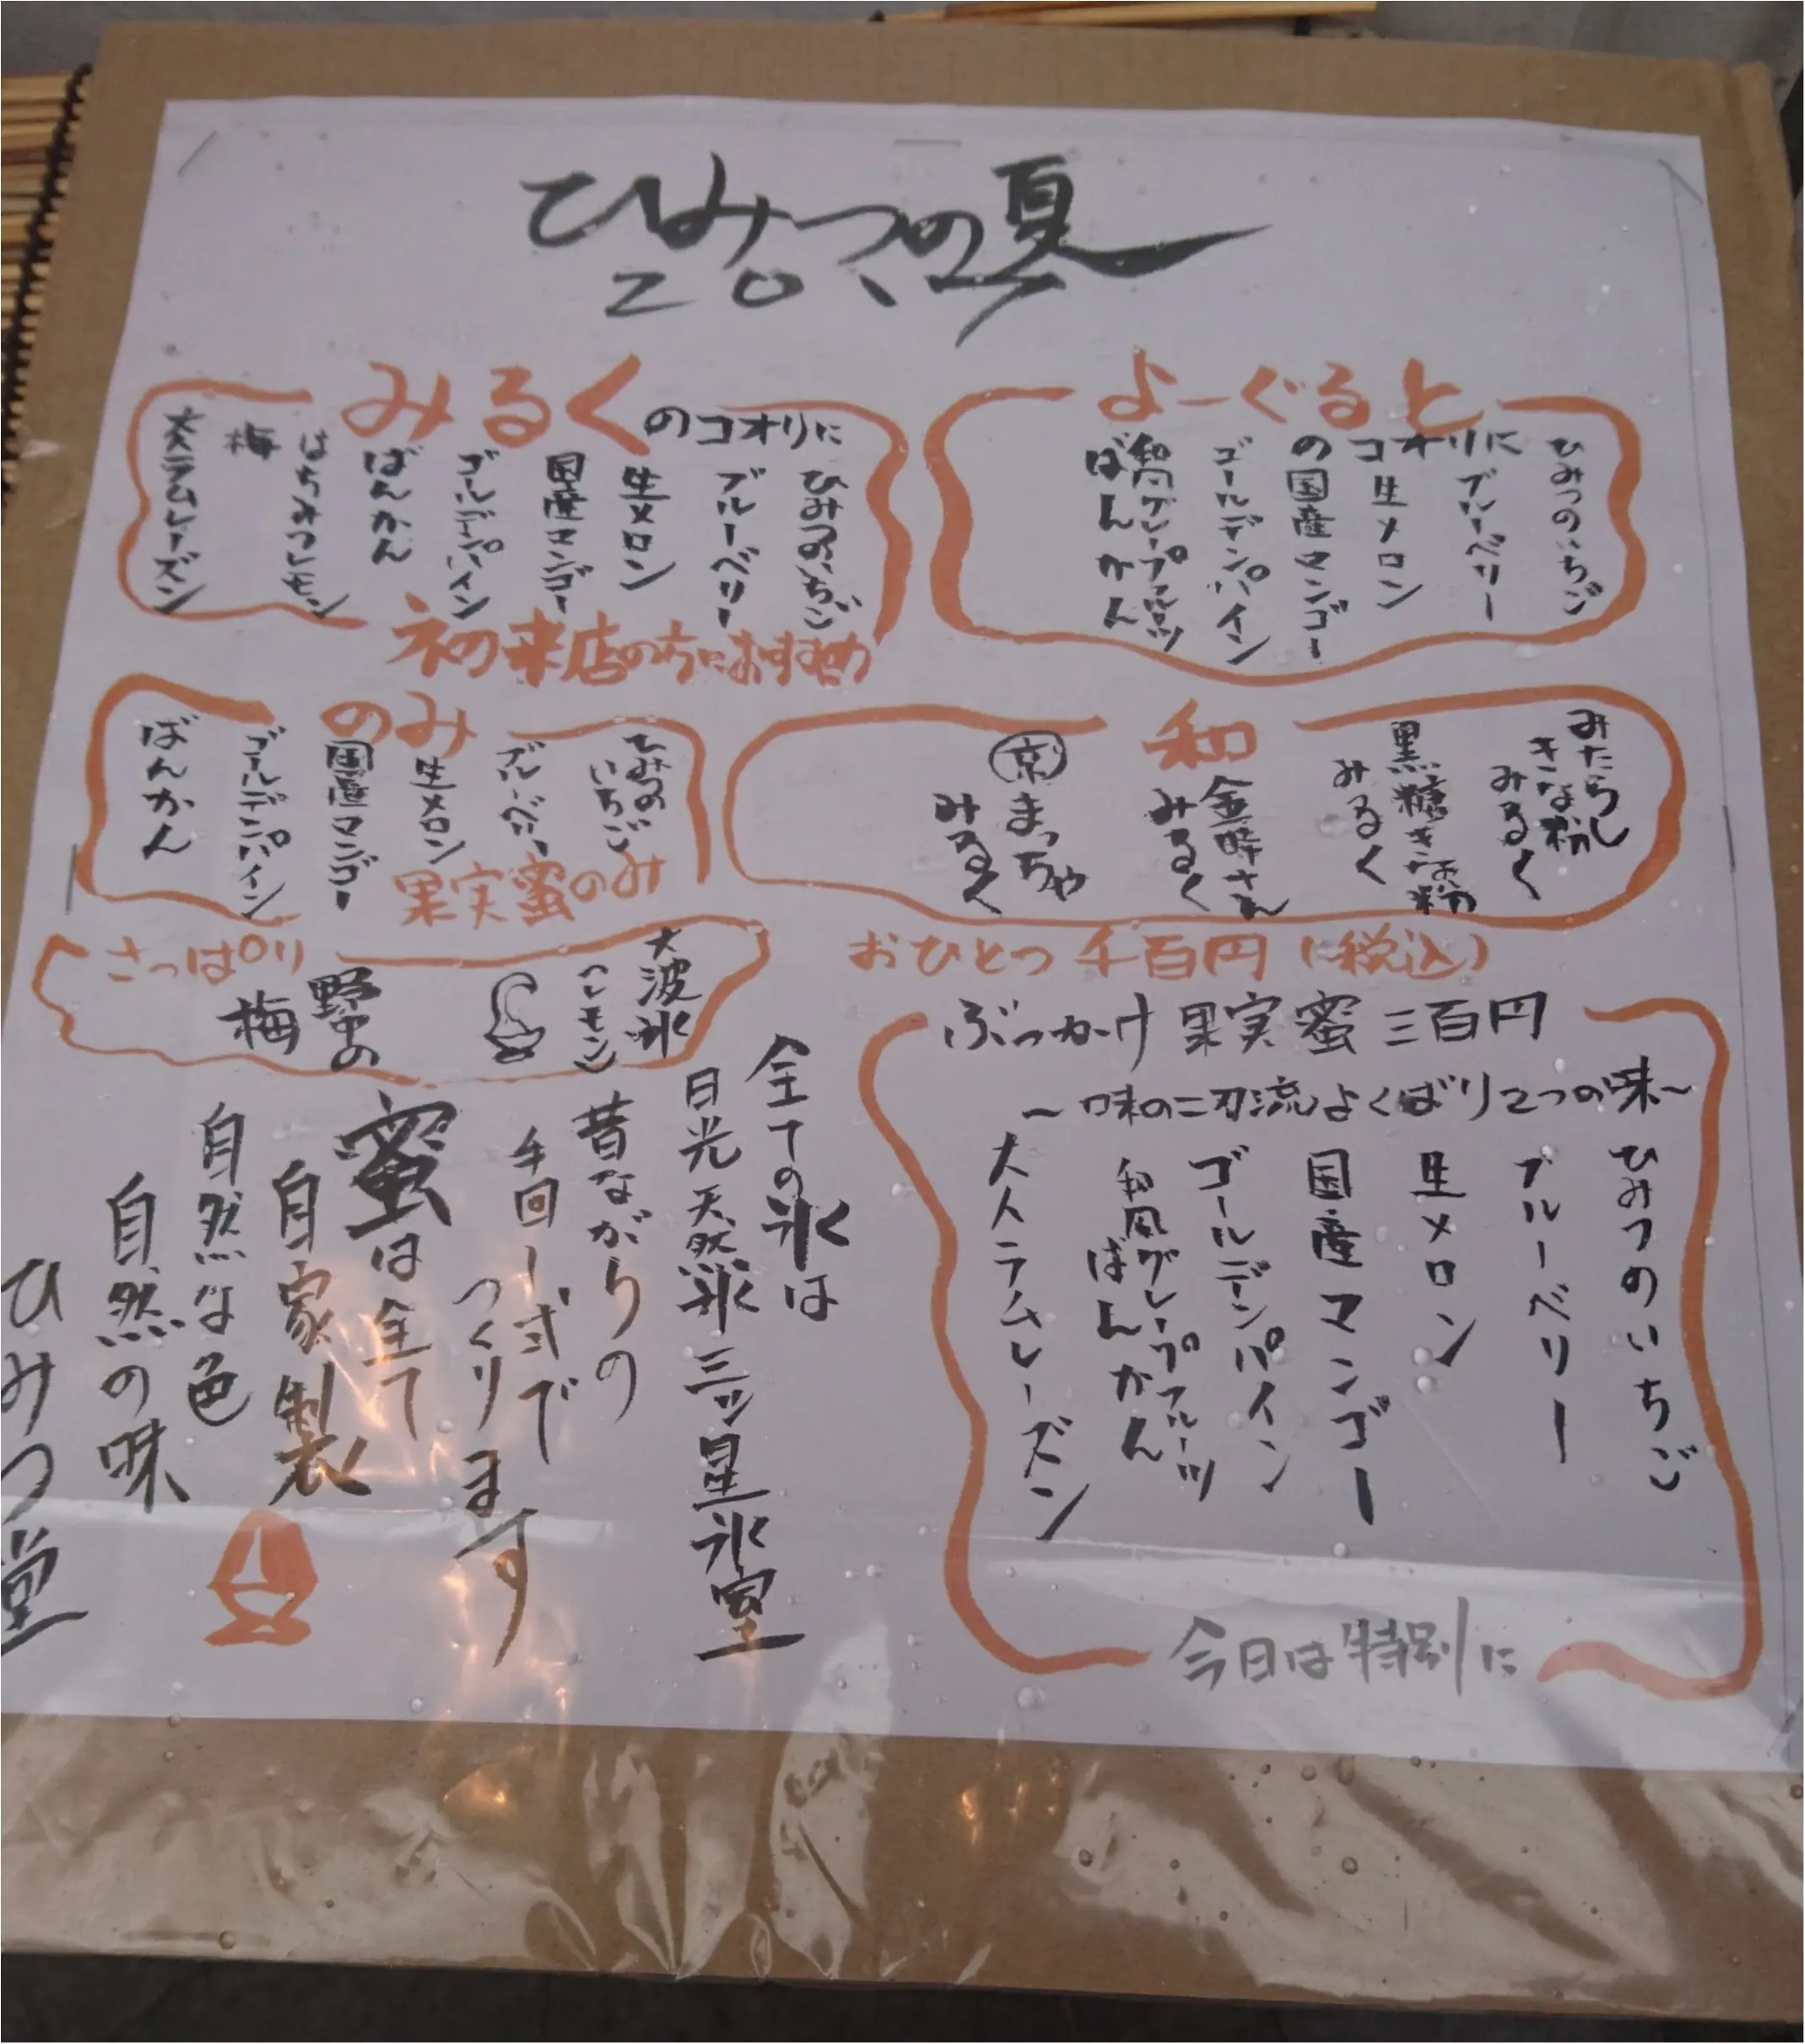 ひみつの夏
みるくのコオリに
ひみつのいちご
ブルーベリー
生メロン
国産マンゴー
ゴールデンパイン
ばんかん
はちみつレモン
梅
大人ラムレーズン
初来店の方におすすめ
よーぐると
のコオリに
ひみつのいちご
ブルーベリー
生メロン
国産マンゴー
ゴールデンパイン
和風グレープフルーツ
ばんかん
のみ
ひみつの
いちご
ブルーベリー
生メロン
国産マンゴー
ゴールデンパイン
ばんかん
果実蜜のみ
和
みたらし
きな粉
みるく
黒糖きなこ粉
みるく
金時さん
みるく
京まっちゃ
みるく
さっぱり
大波氷
(レモン)
野中の
梅
おひとつ 千百円(税込)
ぶっかけ 果実蜜 三百円
~味の二刀流よくばり2つの味~
ひみつのいちご
ブルーベリー
生メロン
国産マンゴー
ゴールデンパイン
和風グレープフルーツ
ばんかん
大人ラムレーズン
今日は特別に
全ての氷は
日光天然氷 三ッ星氷室
昔ながらの
手回し式で
つくります
蜜は全て
自家製
自然な色
自然の味
ひみつ堂